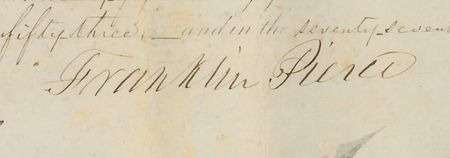 fifty-three, — and in the seventy-seven
Franklin Pierce